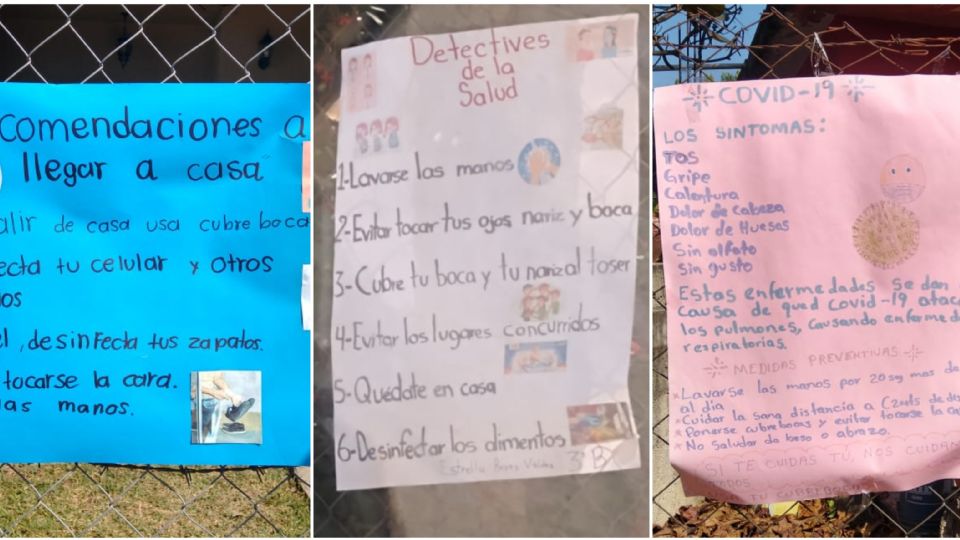 comendaciones a
llegar a casa
alir de casa usa cubre boca
ecta tu celular y otros
los
el, desinfecta tus zapatos.
tocarse la cara.
las manos.
Detectives
de la
Salud
1-Lavarse las manos
2-Evitar tocar tus ojos nariz y boca
3-Cubre tu boca y tu nariz al toser
4-Evitar los lugares concurridos
5-Quedate en casa
6-Desinfectar los alimentos
Estrella Reyes 3° B
COVID-19
LOS SINTOMAS:
TOS
Gripe
Calentura
Dolor de Cabeza
Dolor de Huesos
Sin olfato
Sin gusto
Estas enfermedades se dan
Causa de qued Covid-19 atac
los pulmones, Causando enfermed
respiratorias.
MEDIDAS PREVENTIVAS
*Lavarse las manos por 20sg mas de
al dia
*Cuidar la sana distancia a (2mts de dis
*Ponerse cubrebocas y evitar tocarse la ca
*No saludar de beso o abrazo.
SI TE CUIDAS TÚ, NOS CUIDAM
TODOS
A TU CUBREBOCA